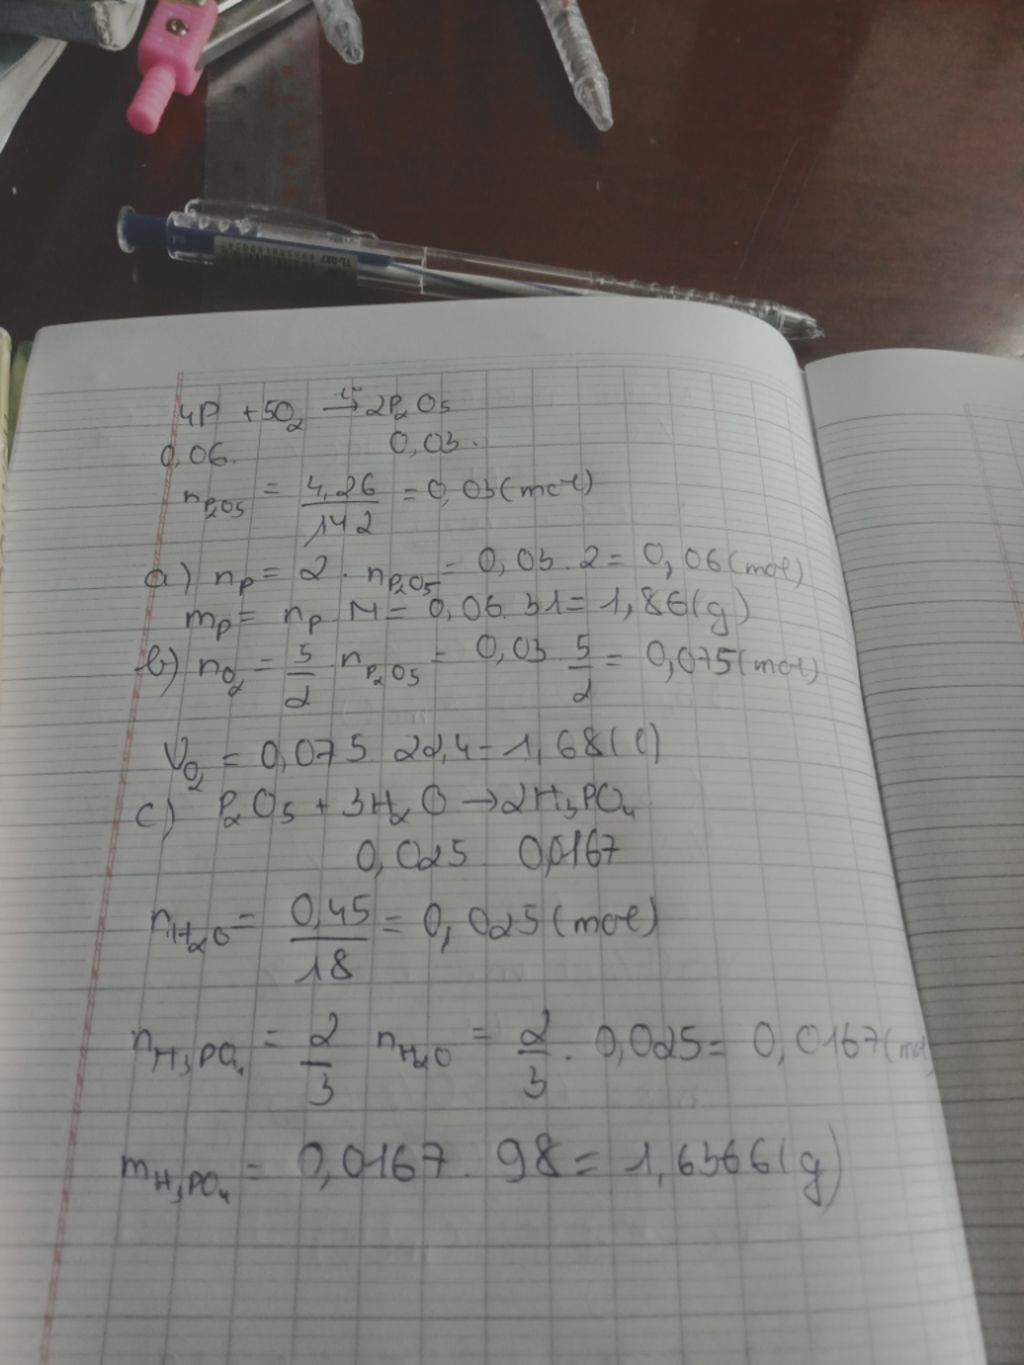 4P + 5O₂ →t° 2P₂O₅
0,06. 0,03.
nP₂O₅ = 4,26/142 = 0,03(mol)
a) nP = 2 . nP₂O₅ = 0,03 . 2 = 0,06(mol)
mP = nP . M = 0,06 . 31 = 1,86(g)
b) nO₂ = 5/2 . nP₂O₅ = 0,03 . 5/2 = 0,075(mol)
VO₂ = 0,075 . 22,4 = 1,68(l)
c) P₂O₅ + 3H₂O → 2H₃PO₄
0,025 0,0167
nH₂O = 0,45/18 = 0,025(mol)
nH₃PO₄ = 2/3 nH₂O = 2/3 . 0,025 = 0,0167(mol)
mH₃PO₄ = 0,0167 . 98 = 1,6366(g)